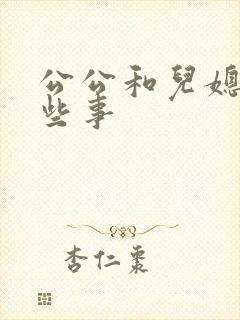 公公和兒媳
些事
杏仁棗